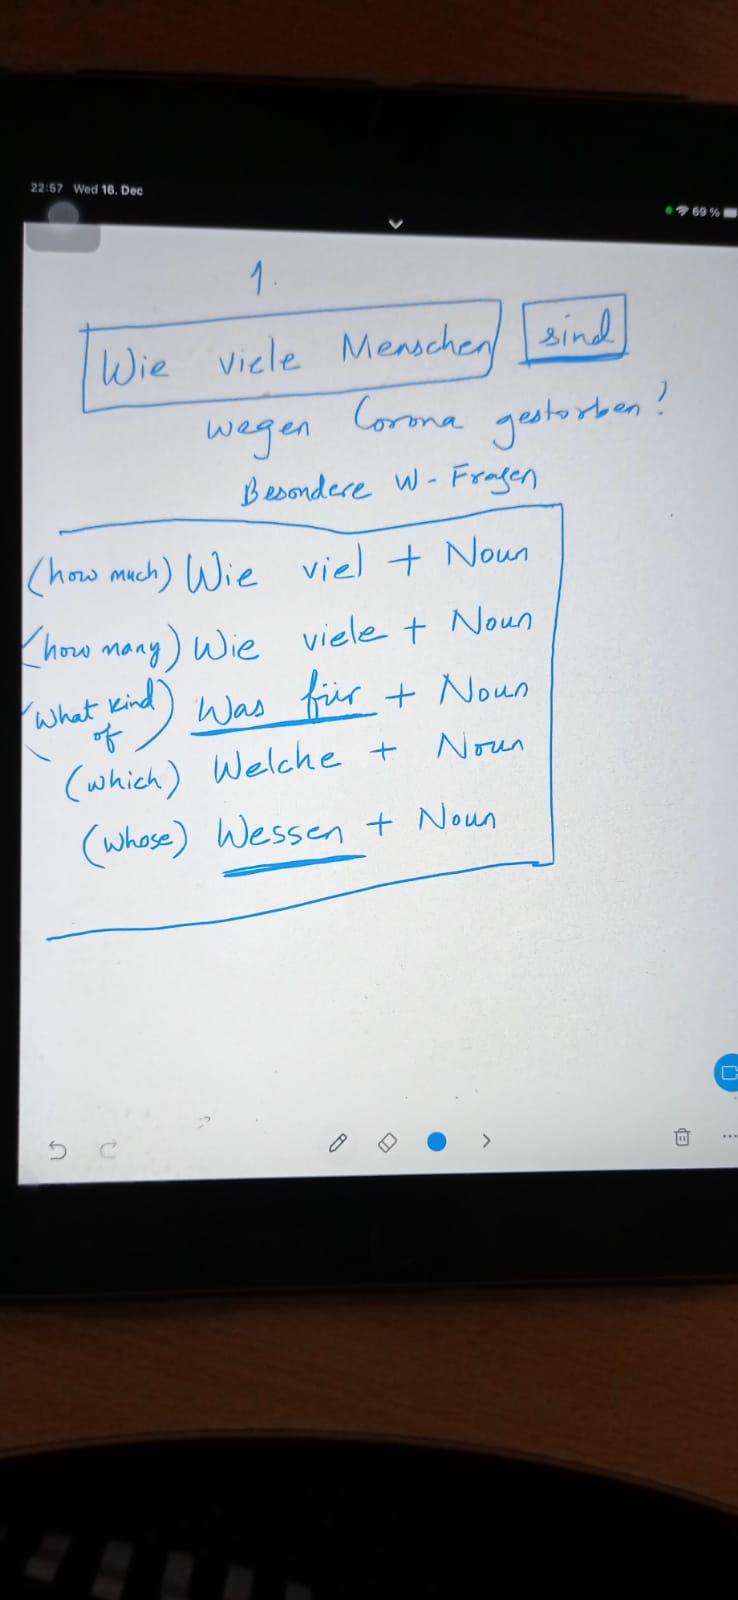 22:57 Wed 16. Dec
69 %
1.
Wie viele Menschen sind
wegen Corona gestorben?
Besondere W-Fragen
(how much) Wie viel + Noun
(how many) Wie viele + Noun
(What kind of) Was für + Noun
(which) Welche + Noun
(whose) Wessen + Noun